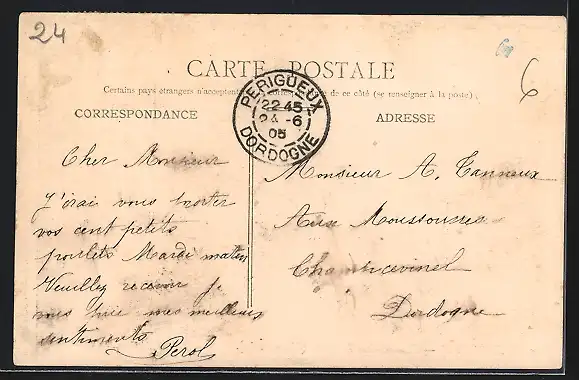 24
6
CARTE POSTALE
Certains pays étrangers n'acceptent de ce côté (se renseigner à la poste).
CORRESPONDANCE
ADRESSE
PERIGUEUX
22 45
24 -6
05
DORDOGNE
Cher Monsieur
J'irai vous porter
vos cent petits
poulets Mardi matin
Veuillez recevoir je
mes meilleurs
sentiments
Perol
Monsieur A. Tanneux
Aux
Champcevinel
Dordogne